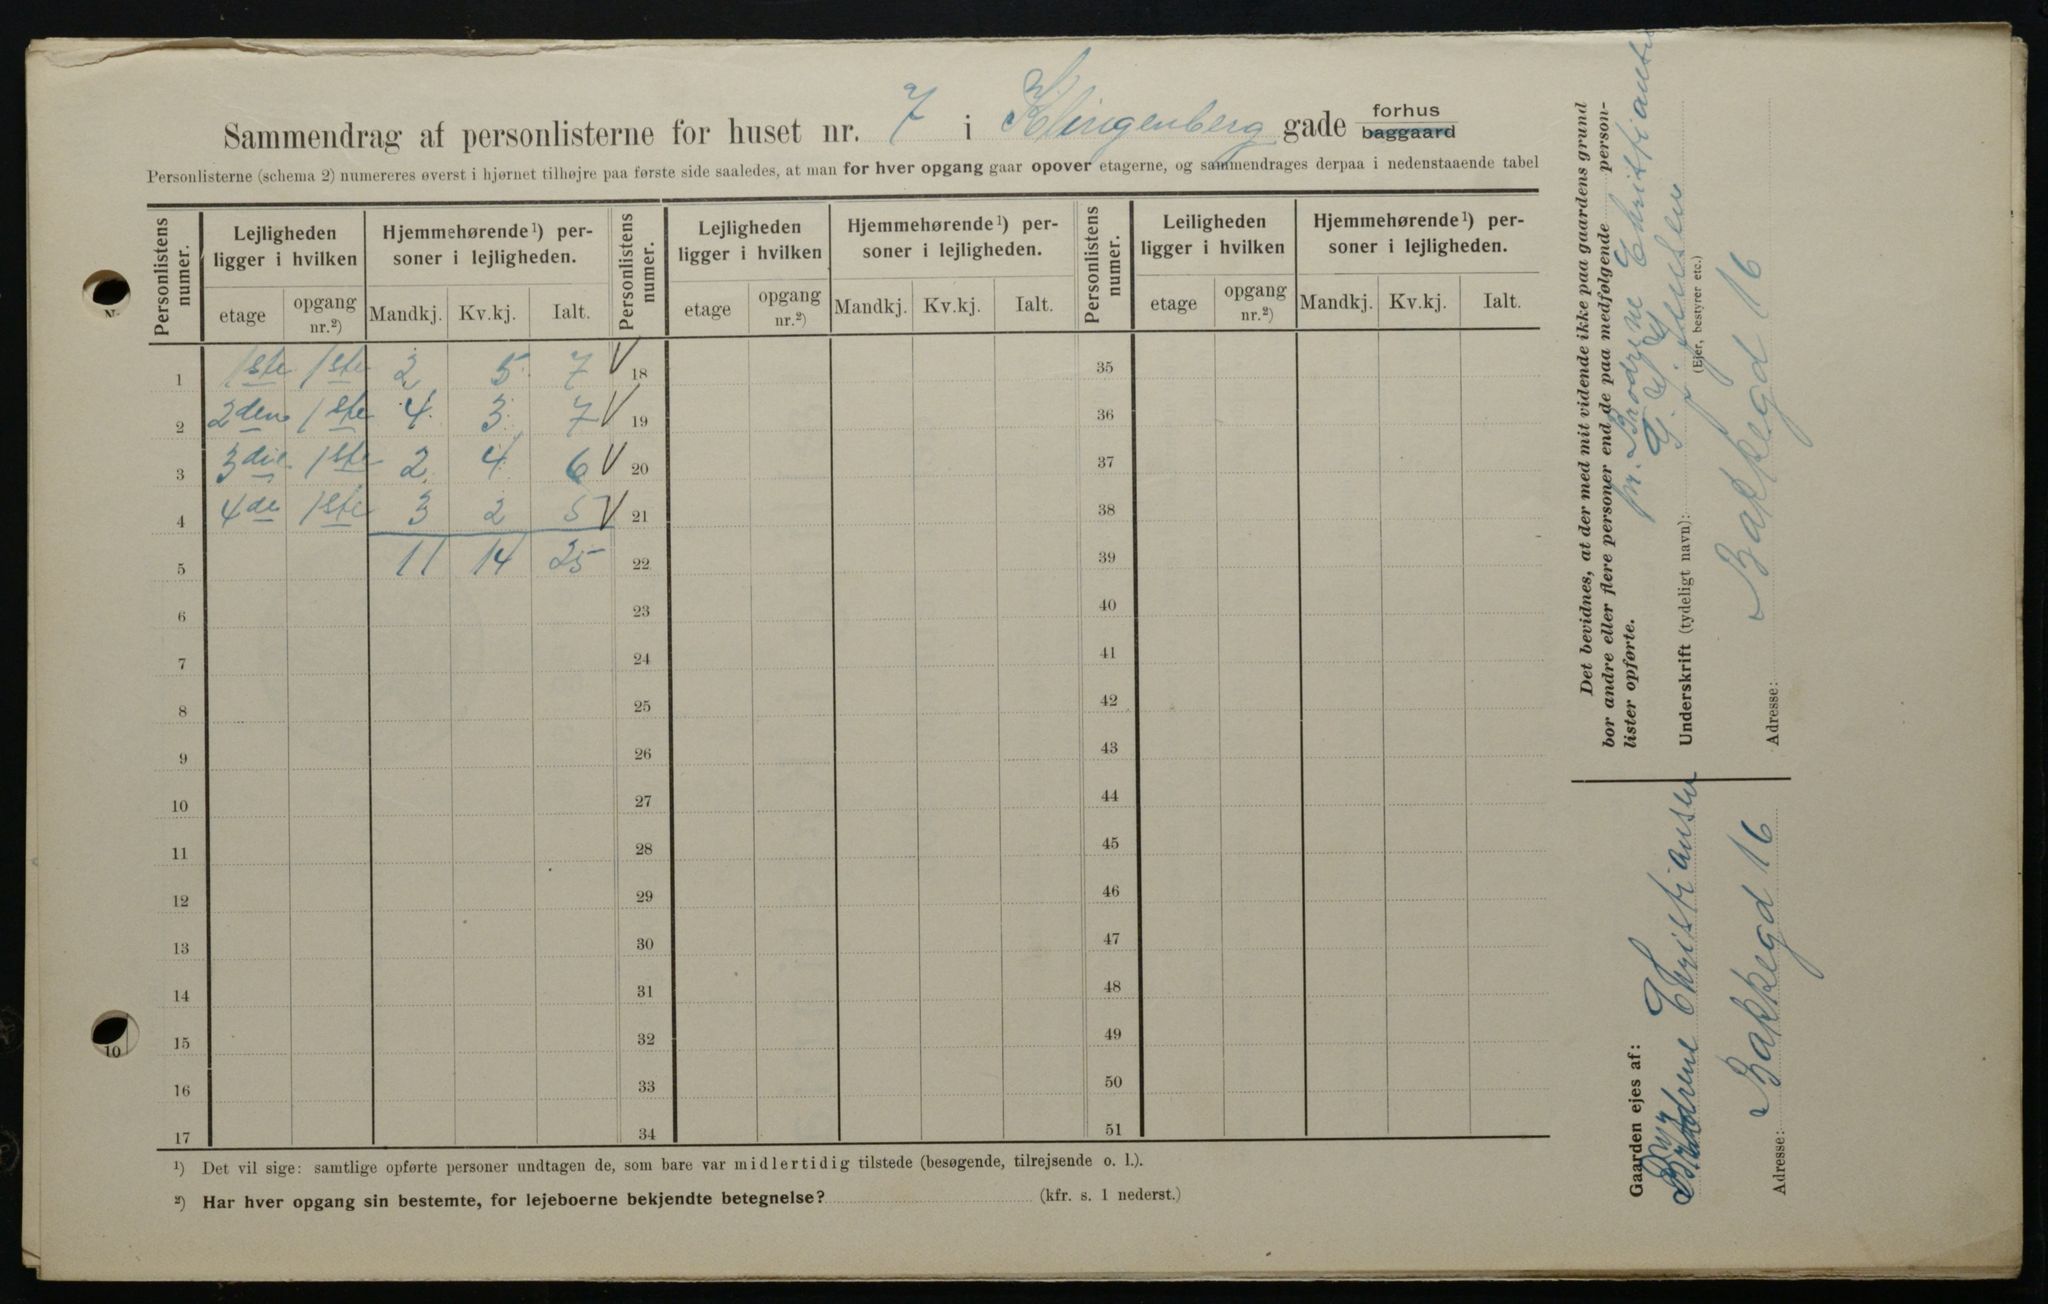 Sammendrag af personlisterne for huset nr. 7 i Klingenberg gade forhus
baggaard
Personlisterne (schema 2) numereres øverst i hjørnet tilhøjre paa første side saaledes, at man for hver opgang gaar opover etagerne, og sammendrages derpaa i nedenstaaende tabel
Personlistens numer. Lejligheden ligger i hvilken Hjemmehørende¹) personer i lejligheden. Personlistens numer. Lejligheden ligger i hvilken Hjemmehørende¹) personer i lejligheden. Personlistens numer. Leiligheden ligger i hvilken Hjemmehørende¹) personer i lejligheden.
etage opgang nr.²) Mandkj. Kv.kj. Ialt. etage opgang nr.²) Mandkj. Kv.kj. Ialt. etage opgang nr.²) Mandkj. Kv.kj. Ialt.
1 1ste 1ste 2 5 7 18 35
2 2den 1ste 4 3 7 19 36
3 3die 1ste 2 4 6 20 37
4 4de 1ste 3 2 5 21 38
5 11 14 25 22 39
6 23 40
7 24 41
8 25 42
9 26 43
10 27 44
11 28 45
12 29 46
13 30 47
14 31 48
15 32 49
16 33 50
17 34 51
¹) Det vil sige: samtlige opførte personer undtagen de, som bare var midlertidig tilstede (besøgende, tilrejsende o. l.).
²) Har hver opgang sin bestemte, for lejeboerne bekjendte betegnelse? (kfr. s. 1 nederst.)
Det bevidnes, at der med mit vidende ikke paa gaardens grund
bor andre eller flere personer end de paa medfølgende person-
lister opførte.
pr. Brødrene Christiansen
Underskrift (tydeligt navn):
(Ejer, bestyrer etc.)
Bakkegd 16
Adresse:
Gaarden ejes af:
Brødrene Christiansen
Bakkegd 16
Adresse:
10